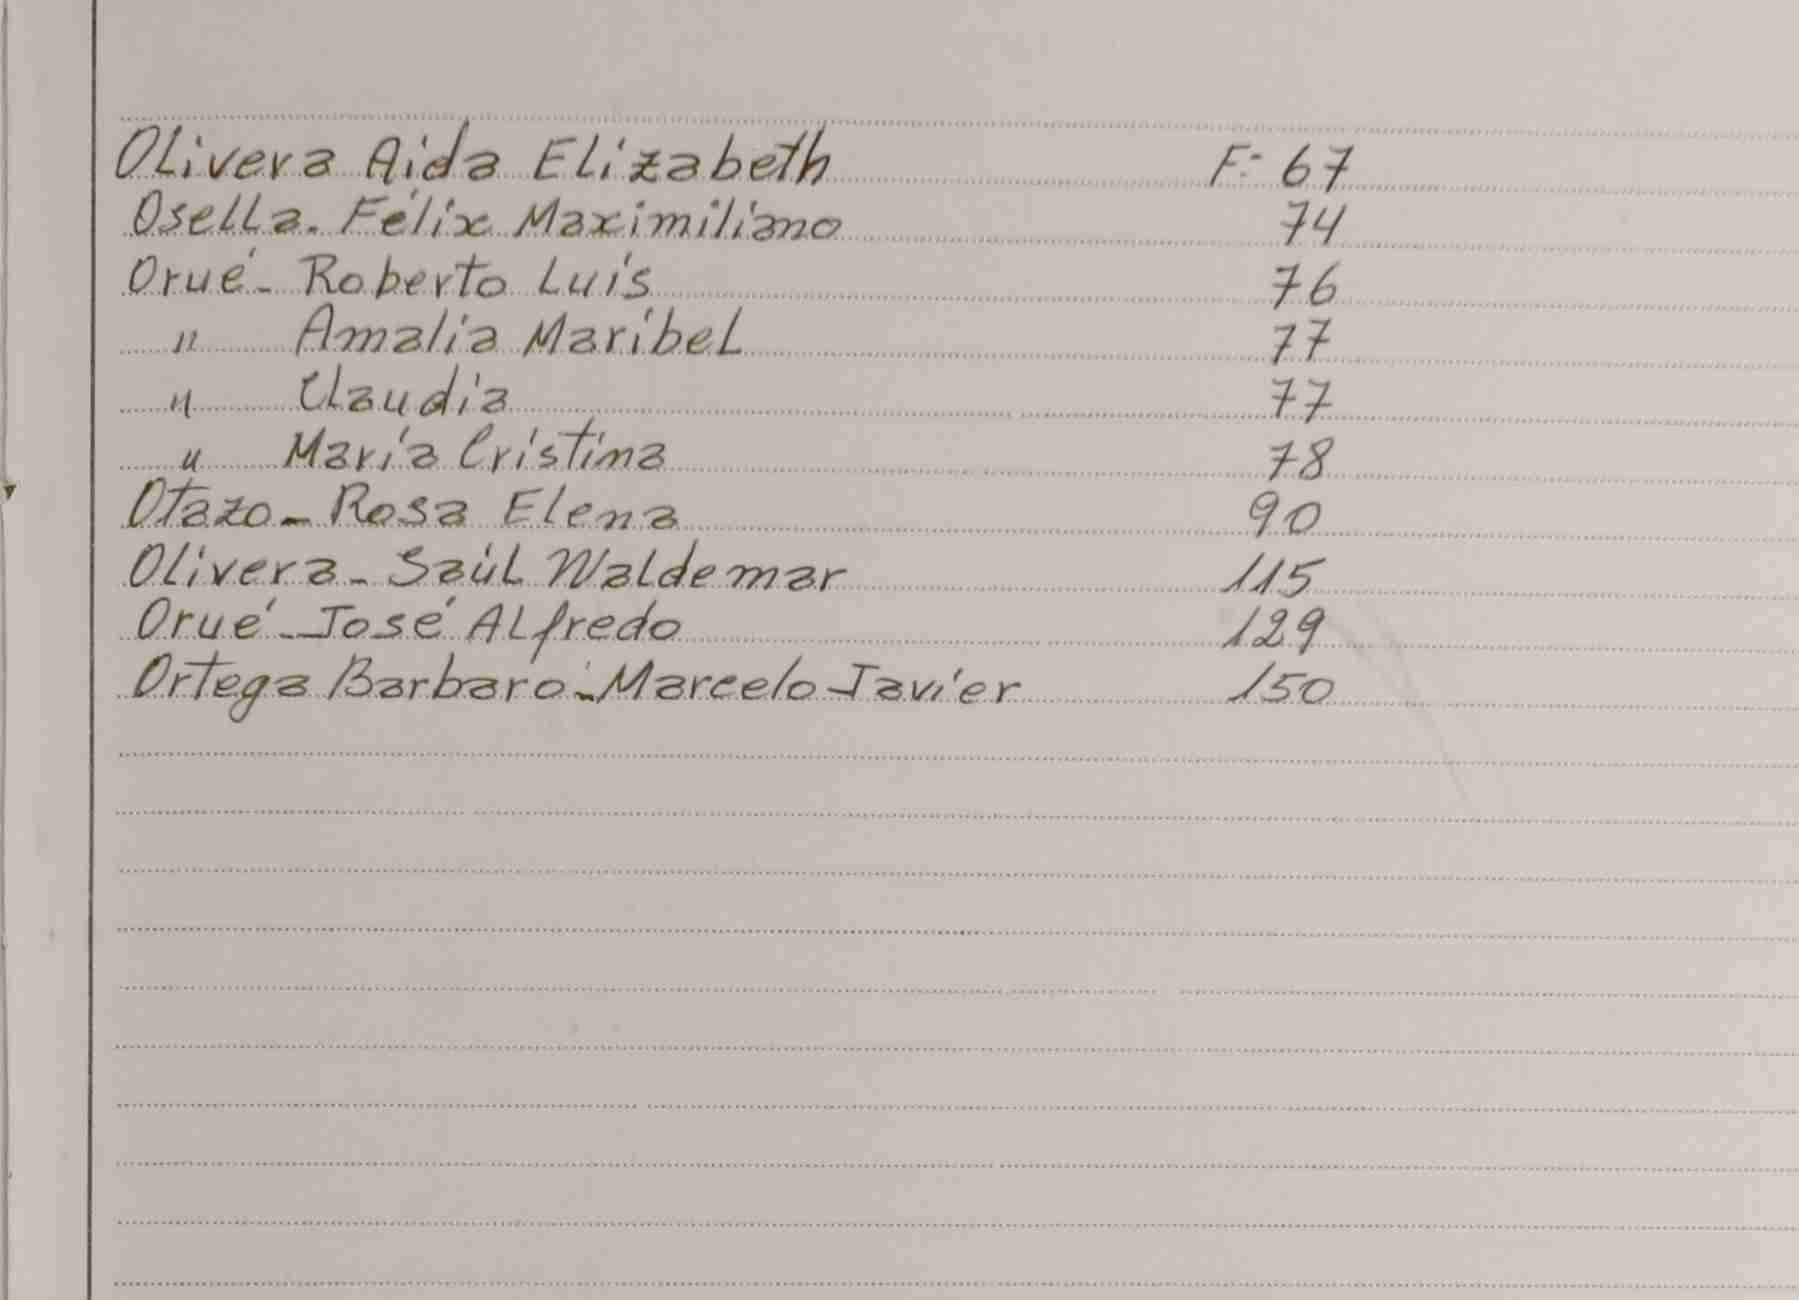 Olivera Aida Elizabeth F= 67
Osella. Félix Maximiliano 74
Orué - Roberto Luis 76
" Amalia Maribel 77
" Claudia 77
" María Cristina 78
Otazo - Rosa Elena 90
Olivera - Saúl Waldemar 115
Orué - José Alfredo 129
Ortega Barbaro - Marcelo Javier 150